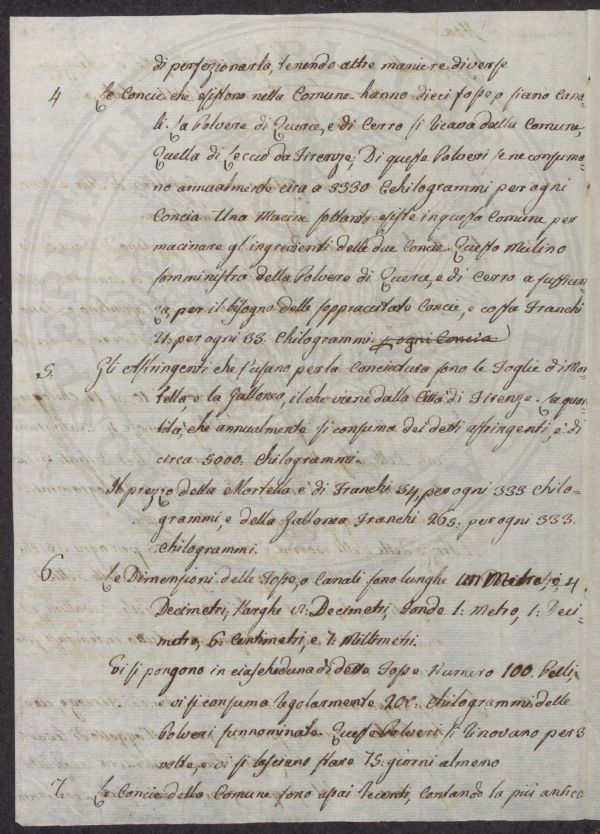 di perfezionarla, tenendo altre maniere diverse
4 Le Concie che esistono nella Comune hanno dieci fosse, o siano Cana-
li. La Polvere di Querce, e di Cerro si ricava dalla Comune,
Quella di Leccio da Firenze; Di queste Polveri se ne consuma-
no annualmente circa a 3330 Chilogrammi per ogni
Concia. Una Macine soltanto esiste in questa Comune per
macinare gl'ingredienti delle due Concie. Questo Mulino
somministra della Polvere di Querce, e di Cerro a sufficien-
za, per il bisogno delle soppraccitate Concie, e costa Franchi
per ogni 33. Chilogrammi. ogni Concia
5. Gli Astringenti che s'usano per la Conciatura sono le Foglie di Mor-
tella, e la Gallonea, il che viene dalla Città di Firenze. La quan-
tità, che annualmente si consuma dei detti astringenti, è di
circa 5000. Chilogrammi.
Il prezzo della Mortella è di Franchi 34, per ogni 333 Chilo-
grammi, e della Gallonea Franchi 265. per ogni 333.
Chilogrammi.
6. Le Dimensioni delle Fosse, o Canali sono lunghe un Metro, e 4
Decimetri, Larghe Decimetri, fonde 1: Metro, 1: Deci-
metro, 6: Centimetri, e 7: Millimetri.
Vi si pongono in ciascheduna di dette Fosse Numero 100. Pelli,
e vi si consuma regolarmente Chilogrammi delle
Polveri sunnominate. Queste Polveri si rinovano per 3
volte, e vi si lasciano stare 75. giorni almeno
7. Le Concie della Comune sono assai recenti, contando la più antica